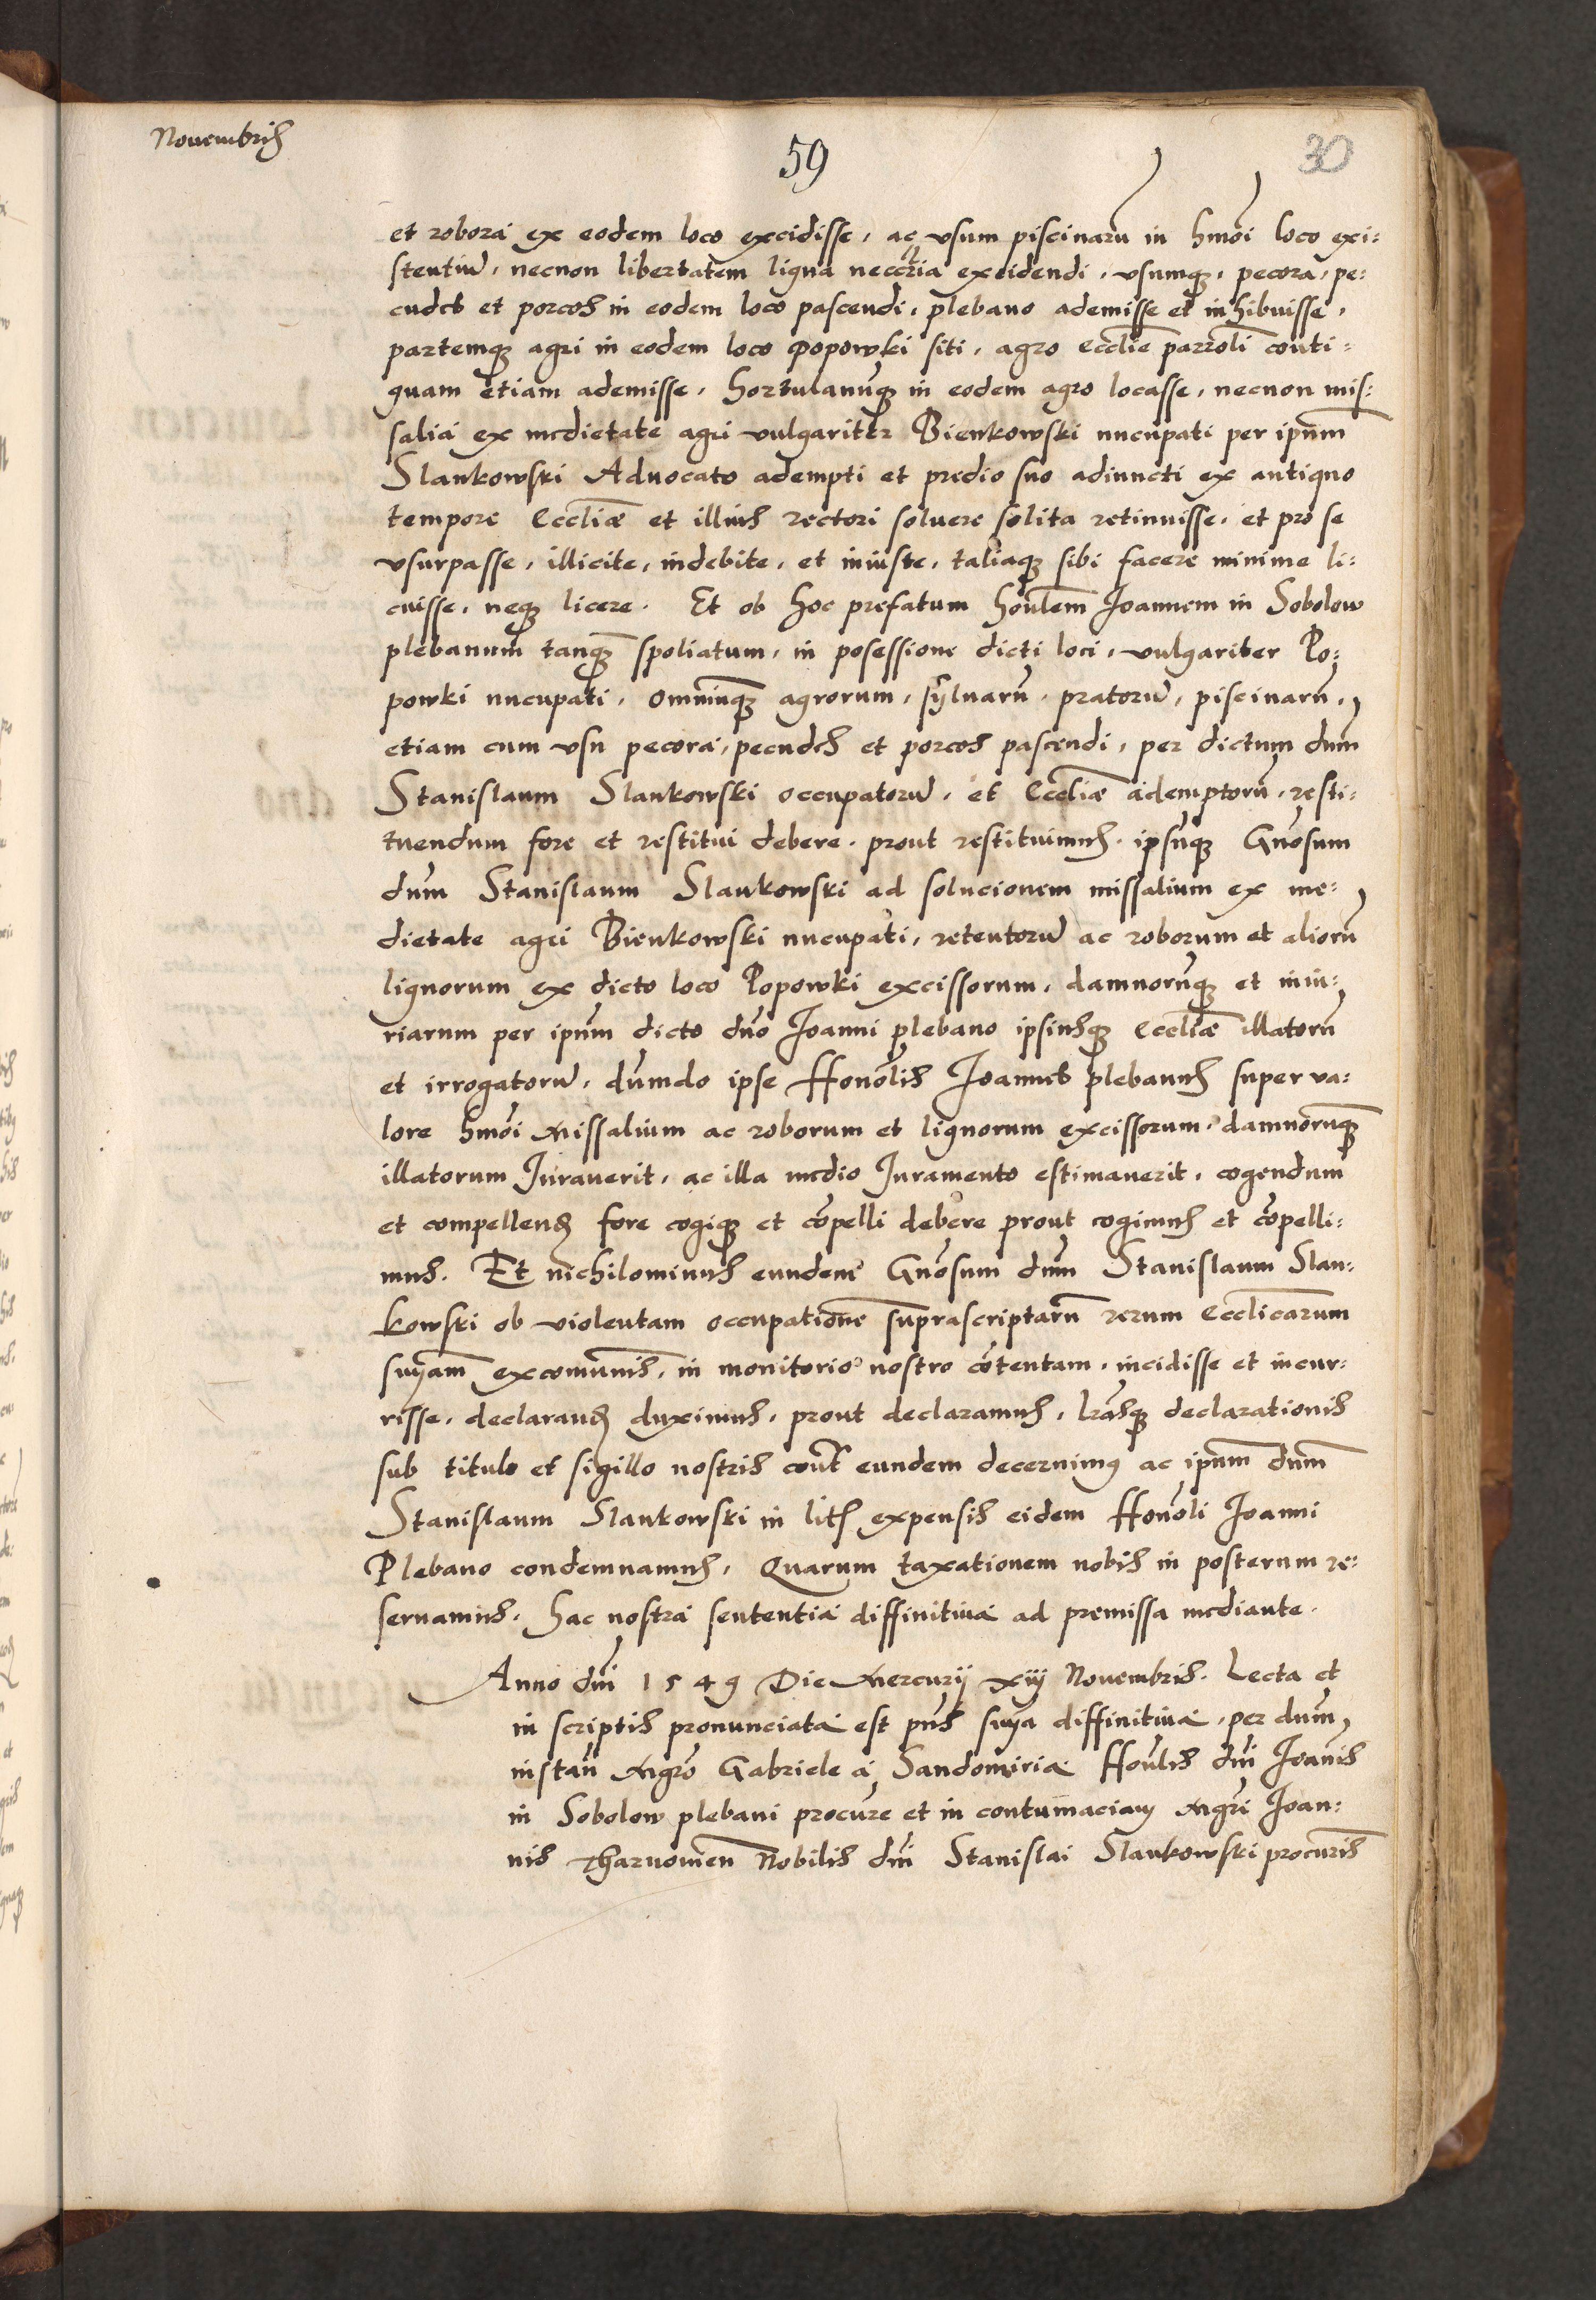 Nouembris
59
30
et robora ex eodem loco excidisse, ac vsum piscinaru in hmoi loco exi:
stentiu, necnon libertatem ligna neccria excidendi, vsumq, pecora, pe:
cudes et porcos in eodem loco pascendi, plebano ademisse et inhibuisse,
partemq agri in eodem loco Popowki siti, agro ecclie parroli conti:
guam etiam ademisse, hortulanuq in eodem agro locasse, necnon mis:
salia ex medietate agri vulgariter Bienkowski nucupati per ipum
Slankowski Aduocato adempti et predio suo adiuncti ex antiquo
tempore Eccliæ et illius rectori soluere solita retinuisse, et pro se
vsurpasse, illicite, indebite, et iniuste, taliaq sibi facere minime li:
cuisse, neq licere. Et ob hoc prefatum houlem Joannem in Sobolow
plebanum tanq spoliatum, in posessione dicti loci, vulgariter Po:
powki nucupati, omniuq agrorum, syluaru, pratoru, piscinaru,
etiam cum vsu pecora, pecudes et porcos pascendi, per dictum dum
Stanislaum Slankowski occupatoru, et Eccliæ ademptoru, resti:
tuendum fore et restitui debere, prout restituimus, ipsuq Gnosum
dum Stanislaum Slankowski ad solucionem missalium ex me:
dietate agri Bienkowski nucupati, retentoru ac roborum et alioru
lignorum ex dicto loco Popowki excissorum, damnoruq et iniu:
riarum per ipum dicto dno Joanni plebano ipsiusq Eccliæ illatoru
et irrogatoru, dumdo ipse Honolis Joannes plebanus super va:
lore hmoi Missalium ac roborum et lignorum excissorum, damnoruq
illatorum Jurauerit, ac illa medio Juramento estimauerit, cogendum
et compellend fore cogiq et copelli debere prout cogimus et copelli:
mus. Et nichilominus eundem Gnosum dum Stanislaum Slan:
kowski ob violentam occupatione suprascriptaru rerum Ecclicarum
suyam excomunis, in monitorio nostro cotentam, incidisse et incur:
risse, declarand duximus, prout declaramus, lrasq declarationis
sub titulo et sigillo nostris cont eundem decernimus ac ipum dum
Stanislaum Slankowski in litis expensis eidem Honoli Joanni
Plebano condemnamus, Quarum taxationem nobis in posterum re:
seruamus, hac nostra sententia diffinitiua ad premissa mediante.
Anno dni 1549 Die Mercurij xiij Nouembris. Lecta et
in scriptis pronunciata est pns suya diffinitiua, per dum,
instan Mgro Gabriele a Sandomiria Houlis dni Joanis
in Sobolow plebani procure et in contumaciam Mgri Joan:
nis Tharnowien Nobilis dni Stanislai Slankowski procuris